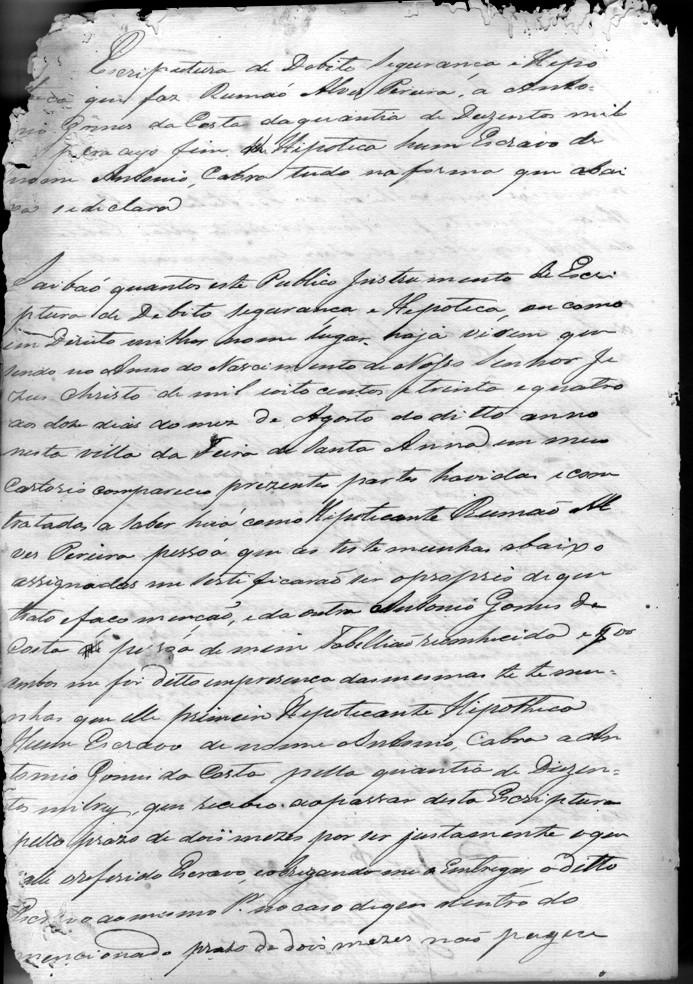 Escriptura de Debito Seguranca e Hepo
teca que faz Rumaõ Alves Pereira, á Anto-
nio Gomes da Costa daquantia de Duzentos mil
para cujo fim Hipoteca hum Escravo de
nome Antonio, Cabra tudo na forma que abai
xo se declara
Saibaõ quantos este Publico Instrumento de Escri
ptura de Debito seguranca e Hepoteca, ou como
em Direito milhor nome lugar haja virem que
sendo no Anno do Nascimento de Nosso Senhor Je
zus Christo de mil oito centos e trinta e quatro
aos doze dias do mez de Agosto do ditto anno
nesta villa da Feira de Santa Anna em meu
Cartorio compareceo prezentes partes havidas e com
tratadas, a saber huá como Hipotecante Rumaõ Al
ves Pereira pessoa que as testemunhas abaixo
assignadas me testeficaraõ ser o proprio de que
trato e faco mencaõ, e da outra Antonio Gomes da
Costa pessoa de mim Tabelliaõ reconhecido e por
ambos me foi ditto em presenca das mesmas te te mu-
nhas que elle primeiro Hepotecante Hipotheca
Hum Escravo de nome Antonio, Cabra a An
tonio Gomes da Costa pella quantia de Duzen-
tos milrey, que recebeo ao passar desta Escriptura
pello prazo de dois mezes por ser justamente o que
vale o referido Escravo, e obrigando me a Entregar o ditto
Escravo ao mesmo no caso de que dentro do
mencionado prazo de dois mezes naõ pague